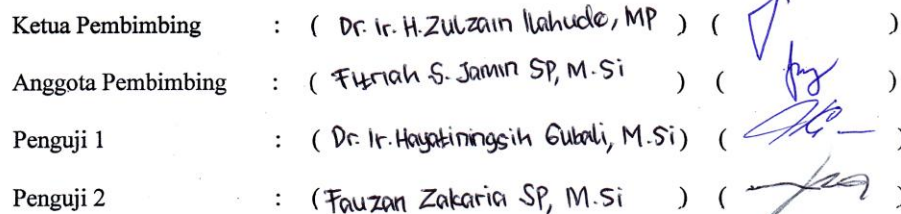 Ketua Pembimbing : ( Dr. Ir. H. Zulzain Ilahude, MP ) ( )
Anggota Pembimbing : ( Fitriah S. Jamin SP, M.Si ) ( )
Penguji 1 : ( Dr. Ir. Hayatiningsih Gubali, M.Si) ( )
Penguji 2 : (Fauzan Zakaria SP, M.Si ) ( )